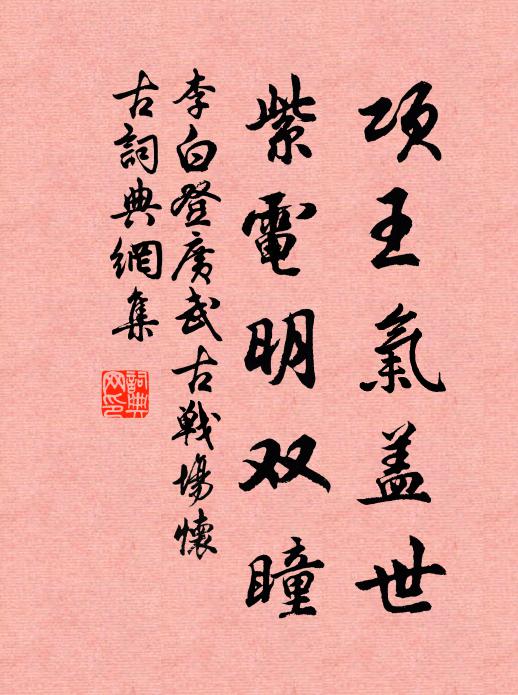 项王氣盖世
紫電明双瞳
李白登廣武古戰場懷
古詞典網集
詞典
网印